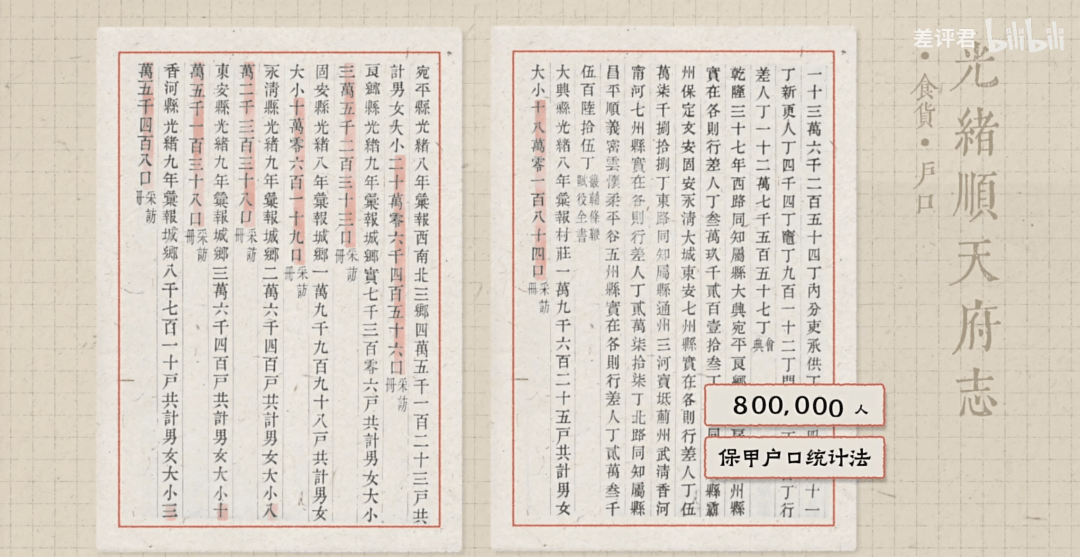 差评君 bilibili
光緒順天府志
·食貨·戶口
一十三萬六千二百五十四丁內分吏承供丁
丁新更人丁四千四丁竈丁九百一十二丁
差人丁一十二萬七千五百五十七丁會典
乾隆三十七年西路同知屬縣大興宛平良鄉
州縣
實在各則行差人丁叁萬玖千貳百壹拾叁丁
縣霸
州保定文安固安永清大城東安七州縣實在各則行差人丁伍
萬柒千捌拾捌丁東路同知屬縣通州三河寶坻薊州武清香河
甯河七州縣實在各則行差人丁貳萬柒拾柒丁北路同知屬縣
昌平順義密雲懷柔平谷五州縣實在各則行差人丁貳萬叁千
伍百陸拾伍丁畿輔條鞭賦役全書
大興縣光緒八年彙報村莊一萬九千六百二十五戶共計男女
大小十八萬零一百八十四口采訪冊
800,000 人
保甲户口统计法
宛平縣光緒八年彙報西南北三鄉四萬五千一百二十三戶共
計男女大小二十萬零六千四百五十六口采訪冊
良鄉縣光緒九年彙報城鄉實七千三百零六戶共計男女大小
三萬五千二百三十三口采訪冊
固安縣光緒八年彙報城鄉一萬九千九百九十八戶共計男女
大小十萬零六百一十九口采訪冊
永清縣光緒九年彙報城鄉二萬六千四百戶共計男女大小八
萬二千三百三十八口采訪冊
東安縣光緒九年彙報城鄉三萬六千四百戶共計男女大小十
萬五千一百三十八口采訪冊
香河縣光緒九年彙報城鄉八千七百一十戶共計男女大小三
萬五千四百八口采訪冊